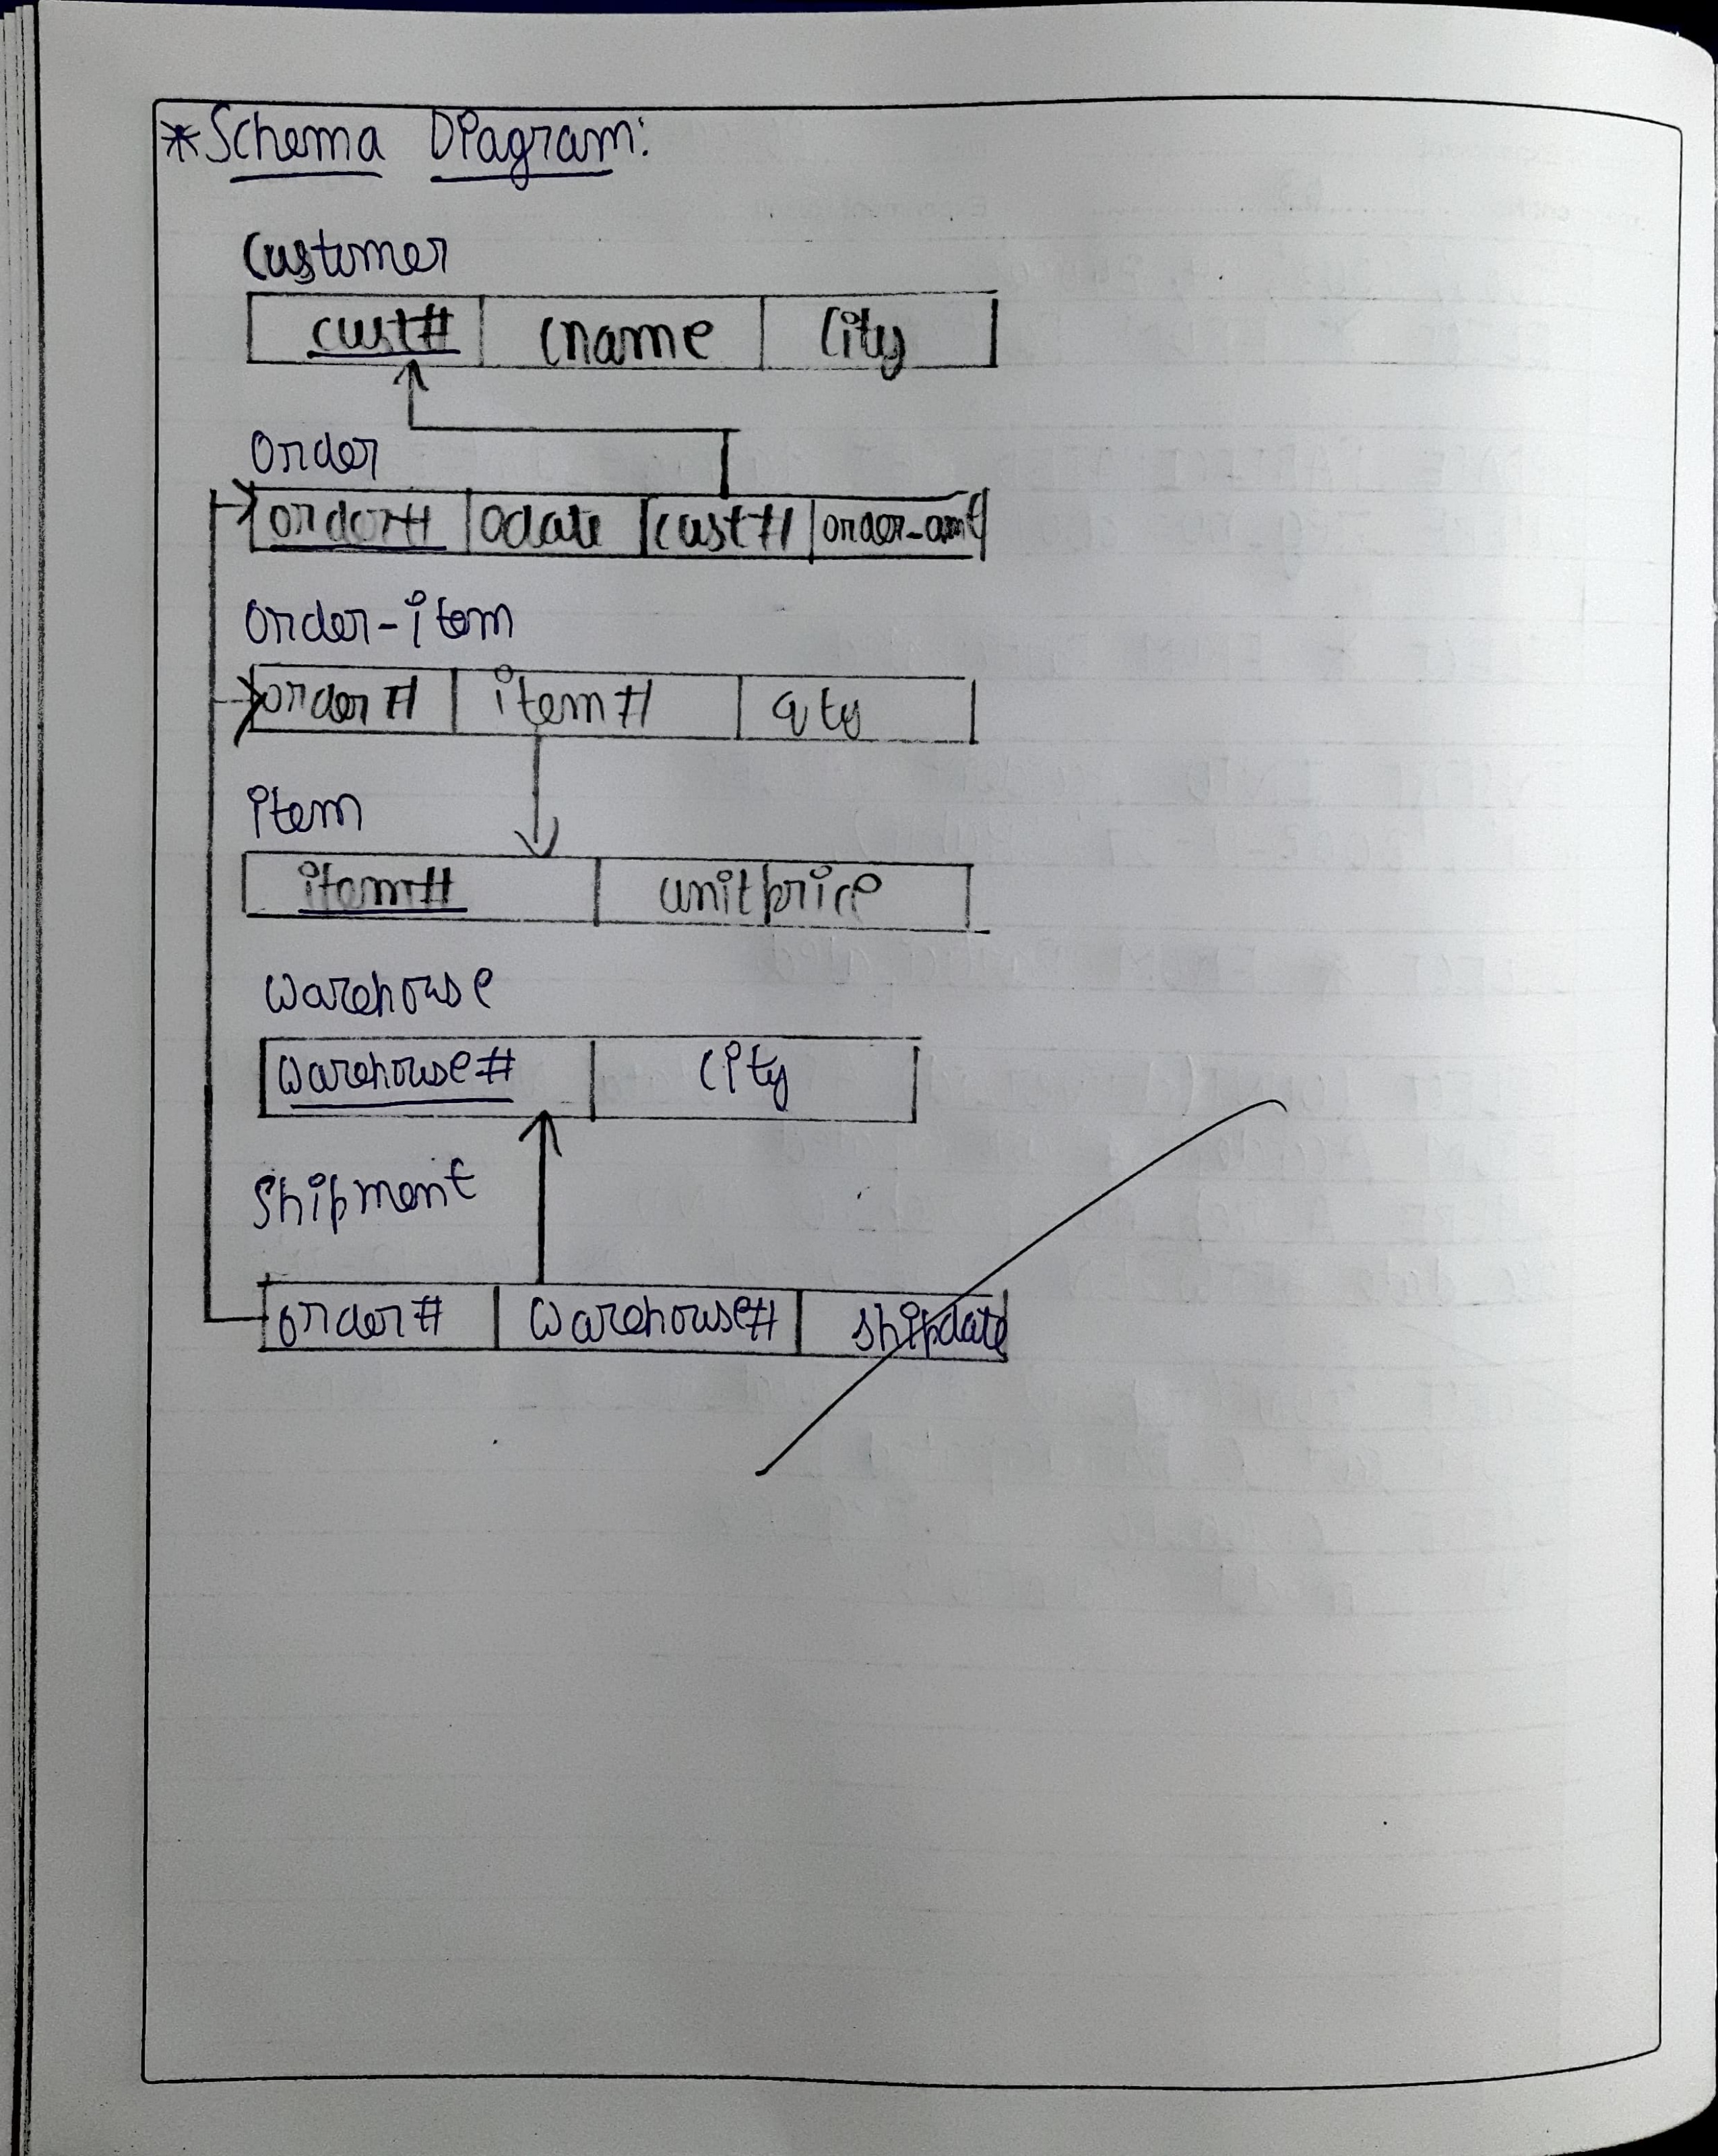 *Schema Diagram:
Customer
cust# cname City
Order
order# odate cust# order-amt
Order-item
order# item# qty
item
item# unitprice
Warehouse
Warehouse# City
Shipment
order# Warehouse# shipdate